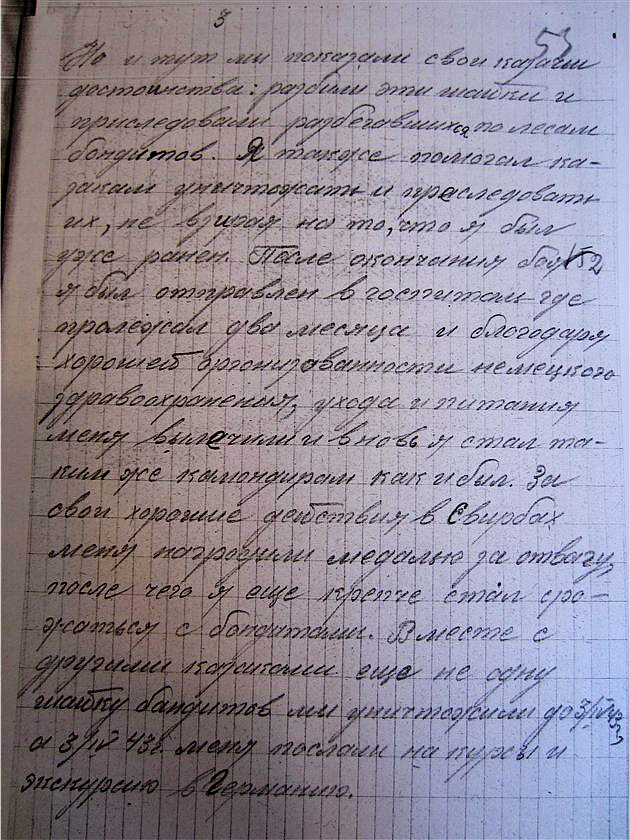 3
53
Но и тут мы показали свои казачи
достоинства: разбили эти шайки и
приследовали разбегавшихся по лесам
бандитов. Я также помогал ка-
закам уничтожать и преследовать
их, не взирая на то, что я был
уже ранен. После окончания боя 52
я был отправлен в госпиталь где
пролежал два месяца и благодаря
хорошей организованности немецкого
здравоохранения, ухода и питания
меня вылечили и вновь я стал та-
ким же камандирам как и был. За
свои хорошие действия в Свирбах
меня наградили медалью за отвагу,
после чего я еще крепче стал сра-
жаться с бандитами. Вместе с
другими казаками еще не одну
шайку бандитов мы уничтожили до 3/IV 43г
а 3/IV 43г. меня послали на курсы и
экскурсию в Германию.